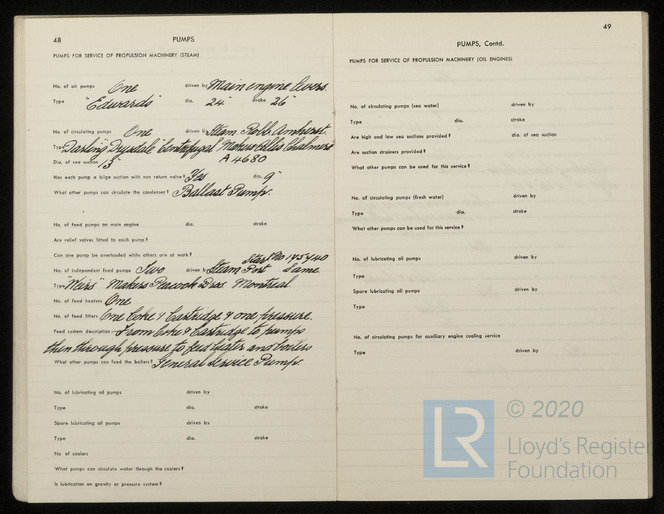 48
PUMPS
PUMPS FOR SERVICE OF PROPULSION MACHINERY (STEAM)
No. of air pumps One driven by Main engine levers.
Type "Edwards" dia. 24" stroke 26"
No. of circulating pumps One driven by Steam Robb. Amherst.
Type Darling Drysdale Centrifugal Makers Allis Chalmers
Dia. of sea suction 13" A 4680
Has each pump a bilge suction with non return valve? Yes dia. 9"
What other pumps can circulate the condenser? Ballast Pump.
No. of feed pumps on main engine dia. stroke
Are relief valves fitted to each pump?
Can one pump be overhauled while others are at work?
Star No 1457/40
No. of independent feed pumps Two driven by Steam Port Same
Type "Weirs" Makers Peacock Bros Montreal
No. of feed heaters One
No. of feed filters One Coke & Cartridge & one pressure.
Feed system description From Coke & Cartridge to pumps
then through pressure to feed heater and boilers
What other pumps can feed the boilers? General Service Pump.
No. of lubricating oil pumps driven by
Type dia. stroke
Spare lubricating oil pumps driven by
Type dia. stroke
No of coolers
What pumps can circulate water through the coolers?
Is lubrication on gravity or pressure system?
49
PUMPS, Contd.
PUMPS FOR SERVICE OF PROPULSION MACHINERY (OIL ENGINES)
No. of circulating pumps (sea water) driven by
Type dia. stroke
Are high and low sea suctions provided? dia. of sea suction
Are suction strainers provided?
What other pumps can be used for this service?
No. of circulating pumps (fresh water) driven by
Type dia. stroke
What other pumps can be used for this service?
No. of lubricating oil pumps driven by
Type
Spare lubricating oil pumps driven by
Type
No. of circulating pumps for auxiliary engine cooling service
Type driven by
LR
© 2020
Lloyd's Register
Foundation